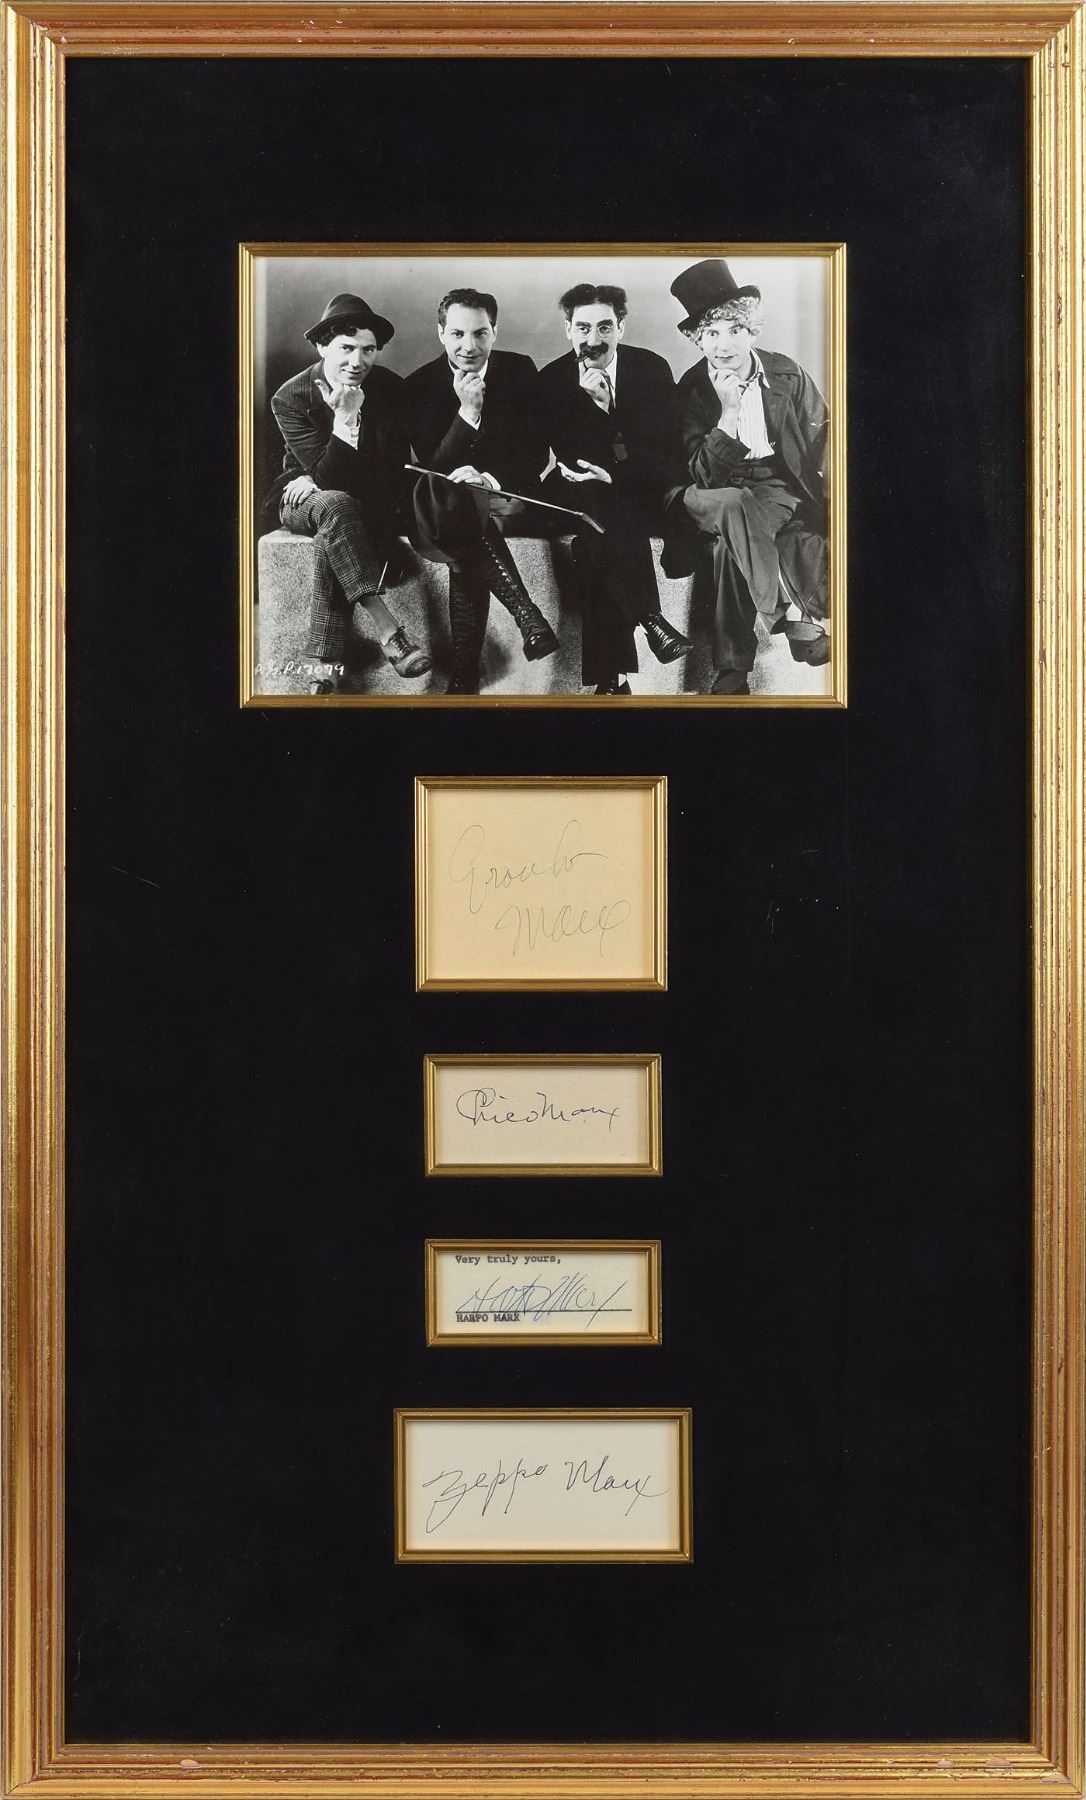 A.G.P.17079
Groucho
Marx
Chico Marx
Very truly yours,
Harpo Marx
HARPO MARX
Zeppo Marx